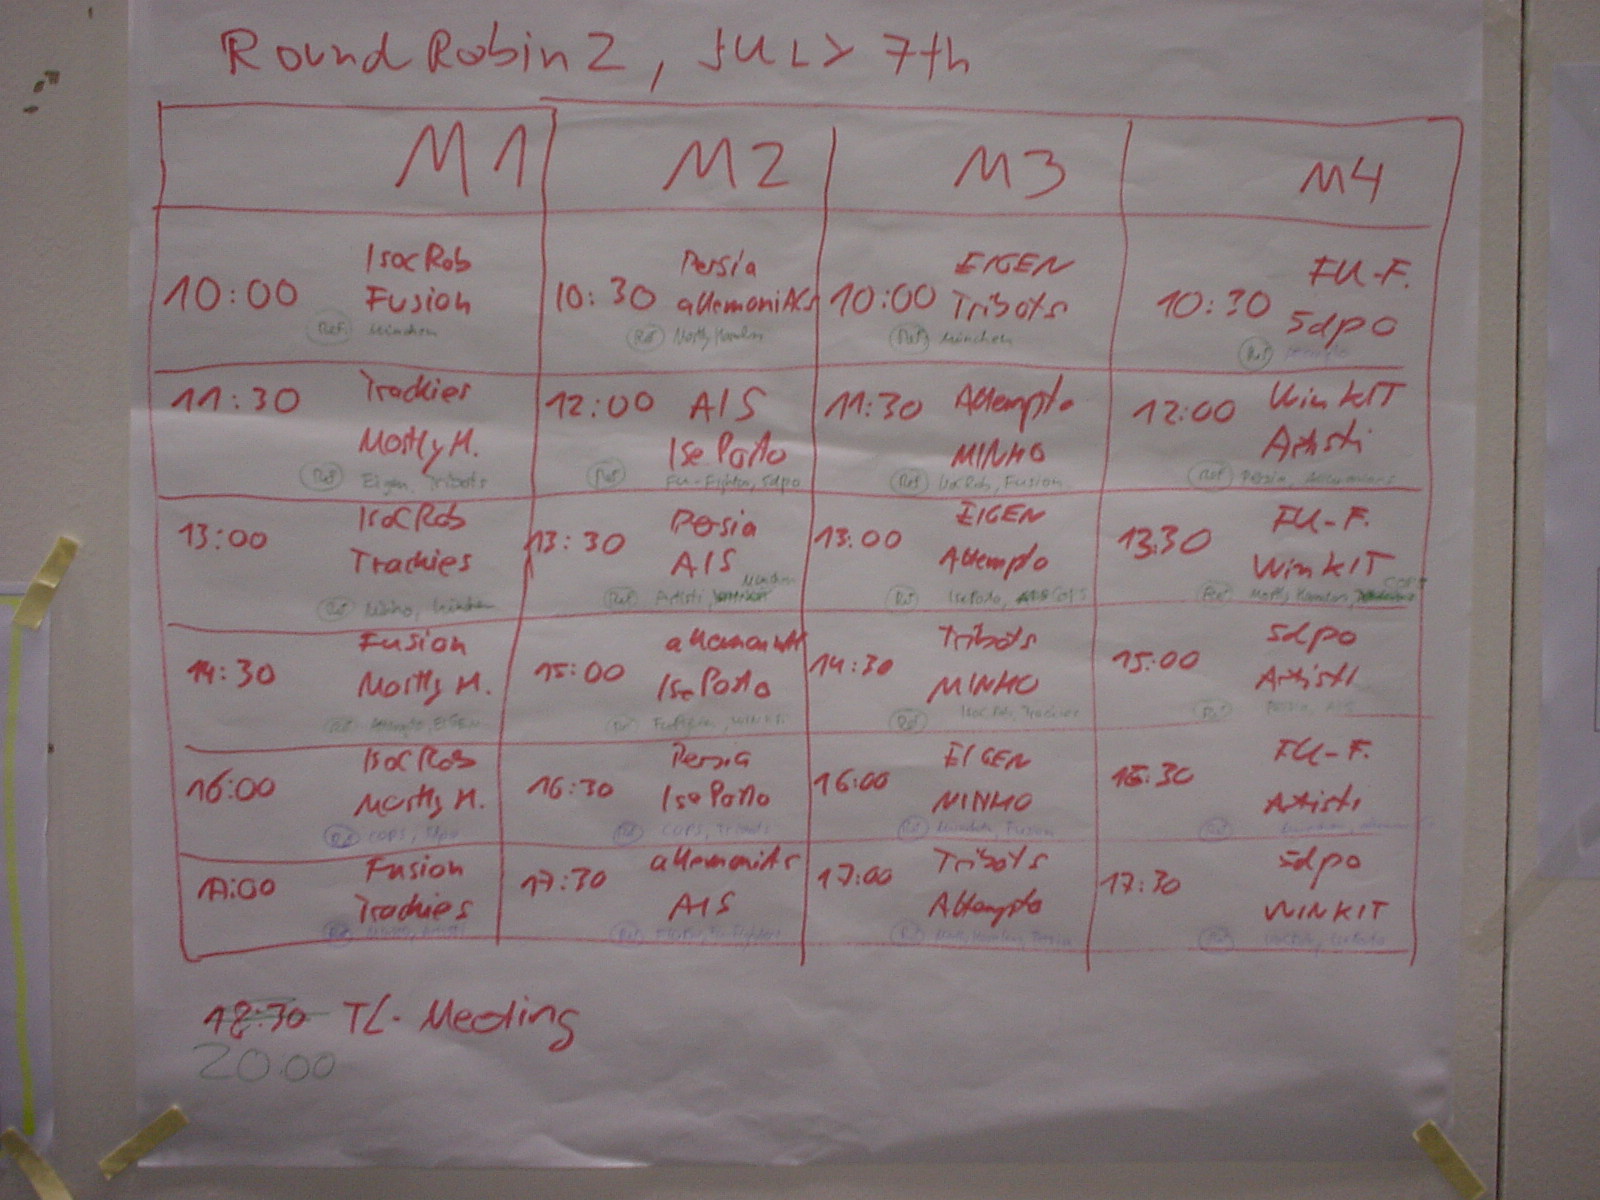 Round Robin 2, JULY 7th
M1 M2 M3 M4
10:00 IsocRob Fusion
Ref München
10:30 Persia allemaniACs
Ref Mostly Harmless
10:00 EIGEN Tribots
Ref München
10:30 FU-F. 5dpo
Ref Attempto
11:30 Trackies Mostly H.
Ref Eigen, Tribots
12:00 AIS IsePorto
Ref FU-Fighters, 5dpo
11:30 Attempto MINHO
Ref IsocRob, Fusion
12:00 WinKIT Artisti
Ref Persia, Allemaniacs
13:00 IsocRob Trackies
Ref Minho, München
13:30 Persia AIS
Ref Artisti,
13:00 EIGEN Attempto
Ref IsePorto, COPS
13:30 FU-F. WinKIT
Ref Mostly Harmless, COPS
14:30 Fusion Mostly H.
Ref Attempto, EIGEN
15:00 allemaniACs IsePorto
Ref
14:30 Tribots MINHO
Ref IsocRob, Trackies
15:00 5dpo Artisti
Ref Persia, AIS
16:00 IsocRob Mostly H.
Ref COPS, 5dpo
16:30 Persia IsePorto
Ref COPS, Tribots
16:00 EIGEN MINHO
Ref München, Fusion
16:30 FU-F. Artisti
Ref
17:00 Fusion Trackies
Ref Minho, Artisti
17:30 allemaniACs AIS
Ref
17:00 Tribots Attempto
Ref Mostly Harmless, Persia
17:30 5dpo WINKIT
Ref IsocRob, IsePorto
18:30 TL-Meeting
20.00